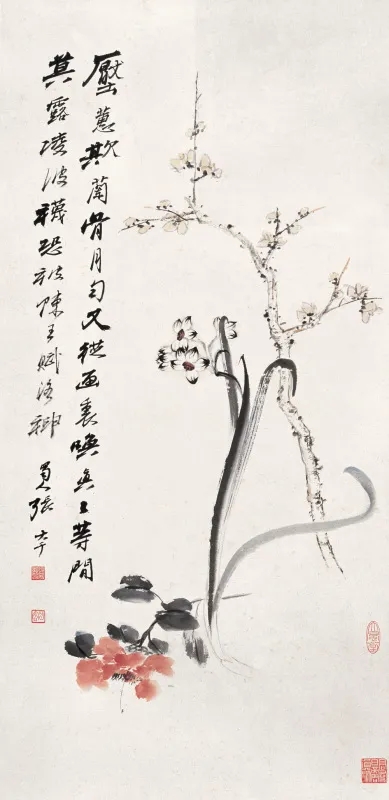 壓蕙欺蘭骨月勻又從画裏喚真〻等閒
莫露凌波襪恐被陳王賦洛神
張大千